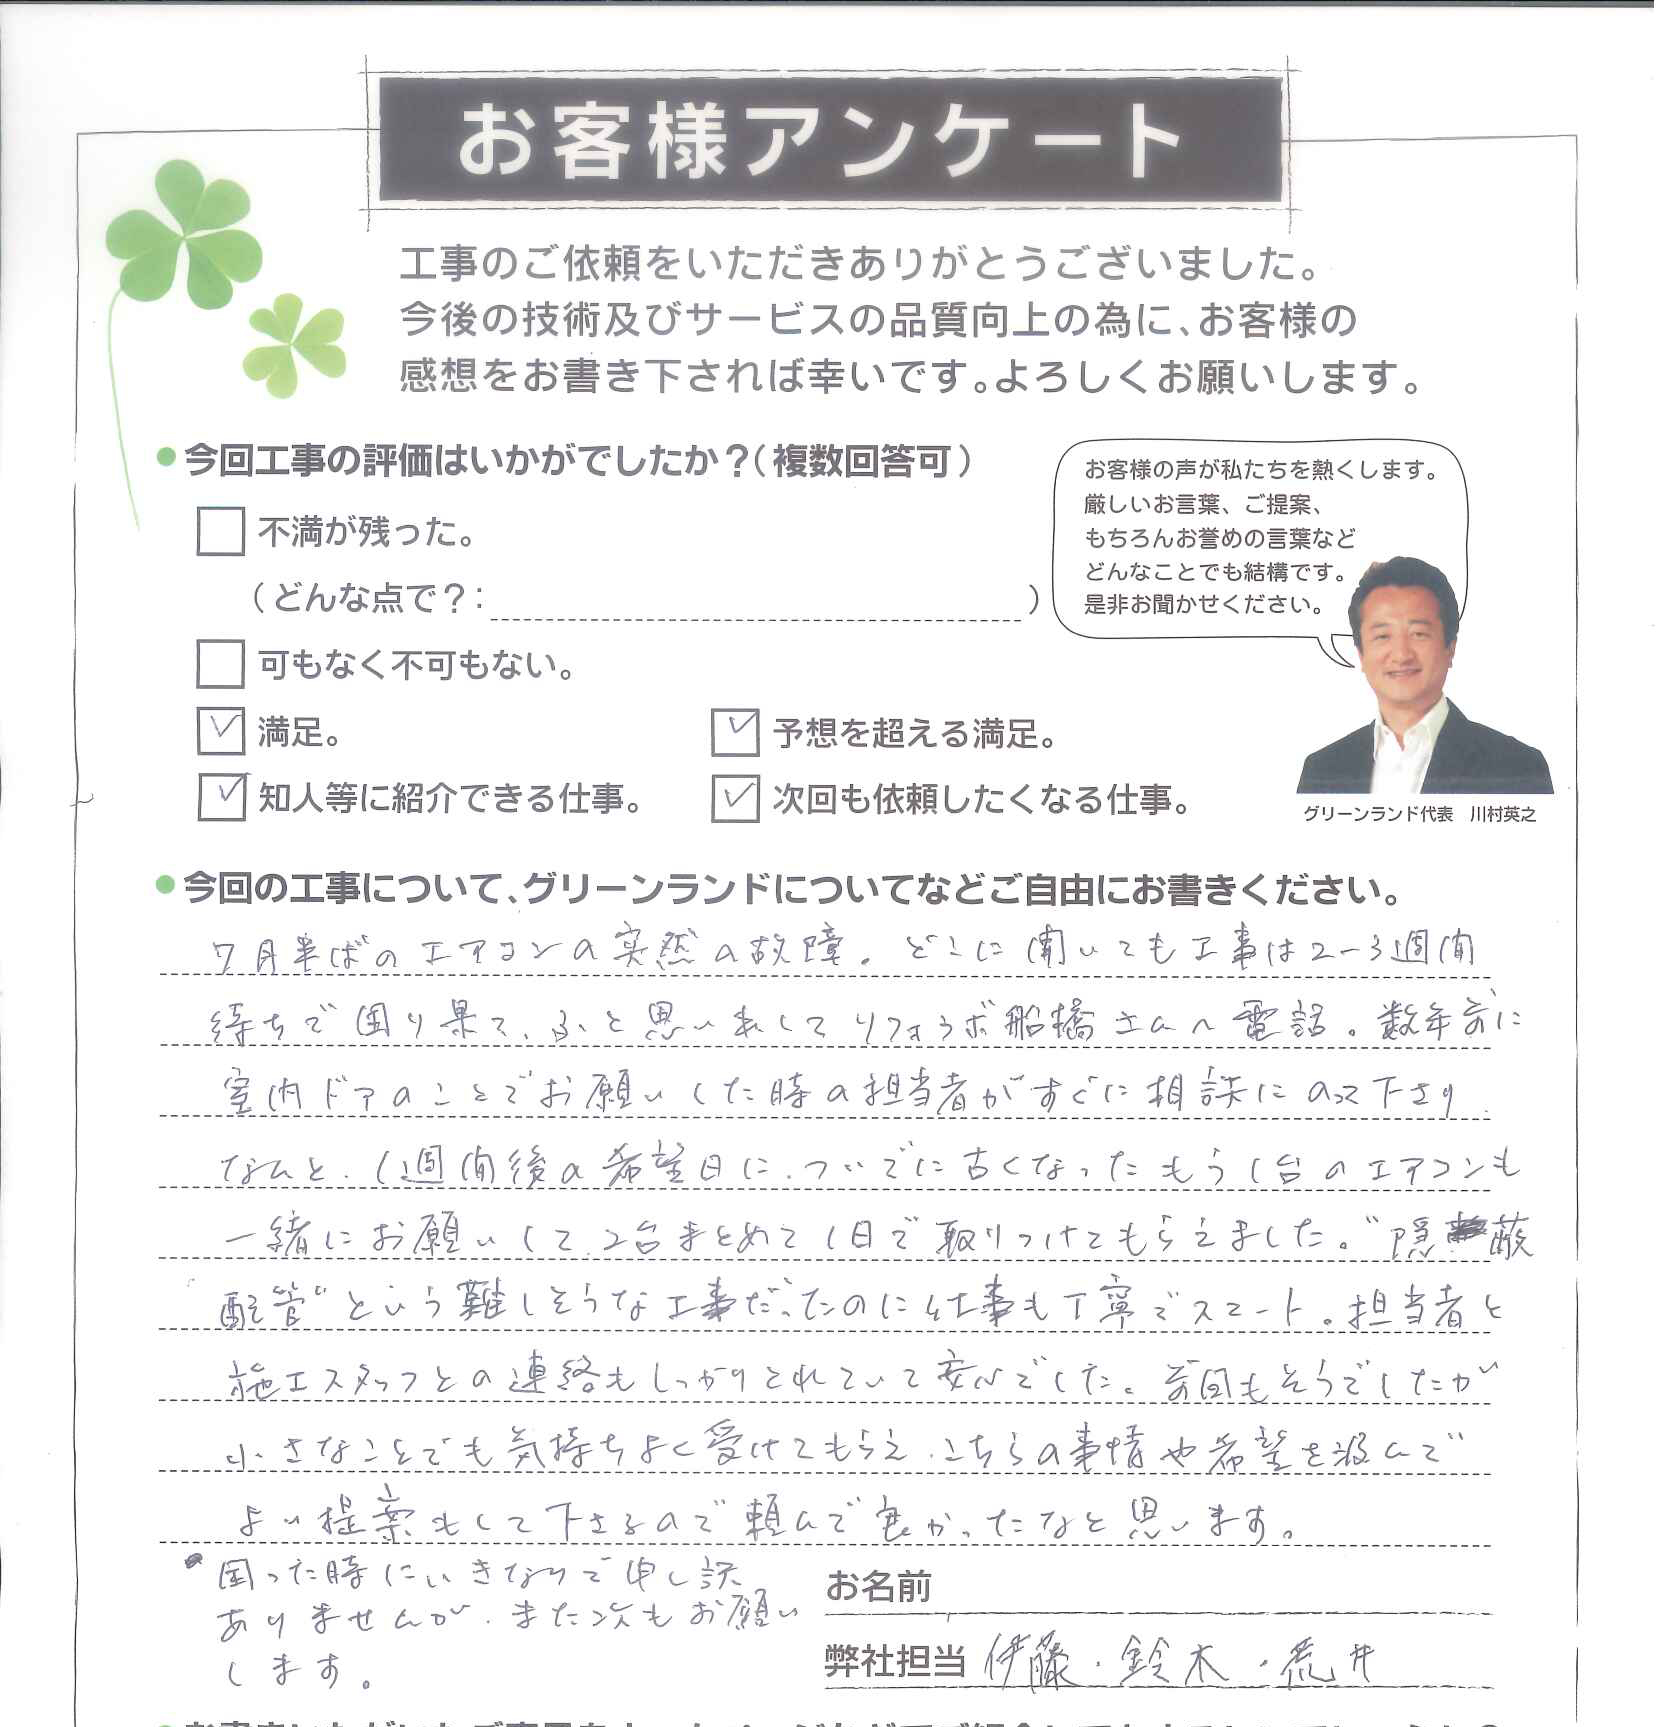 お客様アンケート
工事のご依頼をいただきありがとうございました。
今後の技術及びサービスの品質向上の為に、お客様の
感想をお書き下されば幸いです。よろしくお願いします。
今回工事の評価はいかがでしたか?(複数回答可)
不満が残った。
(どんな点で?: )
可もなく不可もない。
満足。
予想を超える満足。
知人等に紹介できる仕事。
次回も依頼したくなる仕事。
お客様の声が私たちを熱くします。
厳しいお言葉、ご提案、
もちろんお誉めの言葉など
どんなことでも結構です。
是非お聞かせください。
グリーンランド代表 川村英之
今回の工事について、グリーンランドについてなどご自由にお書きください。
7月半ばのエアコンの突然の故障。どこに聞いても工事は2〜3週間
待ちで困り果て、ふと思い出してリフォラボ船橋さんへ電話。数年前に
室内ドアのことでお願いした時の担当者がすぐに相談にのって下さり
なんと、1週間後の希望日に、ついでに古くなったもう1台のエアコンも
一緒にお願いして、2台まとめて1日で取りつけてもらえました。"隠蔽
配管"という難しそうな工事だったのに仕事も丁寧でスマート。担当者と
施工スタッフとの連絡もしっかりとれていて安心でした。前回もそうでしたが
小さなことでも気持ちよく受けてもらえ、こちらの事情や希望を汲んで
よい提案もして下さるので頼んで良かったなと思います。
困った時にいきなりで申し訳
ありませんが、また次もお願い
します。
お名前
弊社担当 伊藤・鈴木・荒井